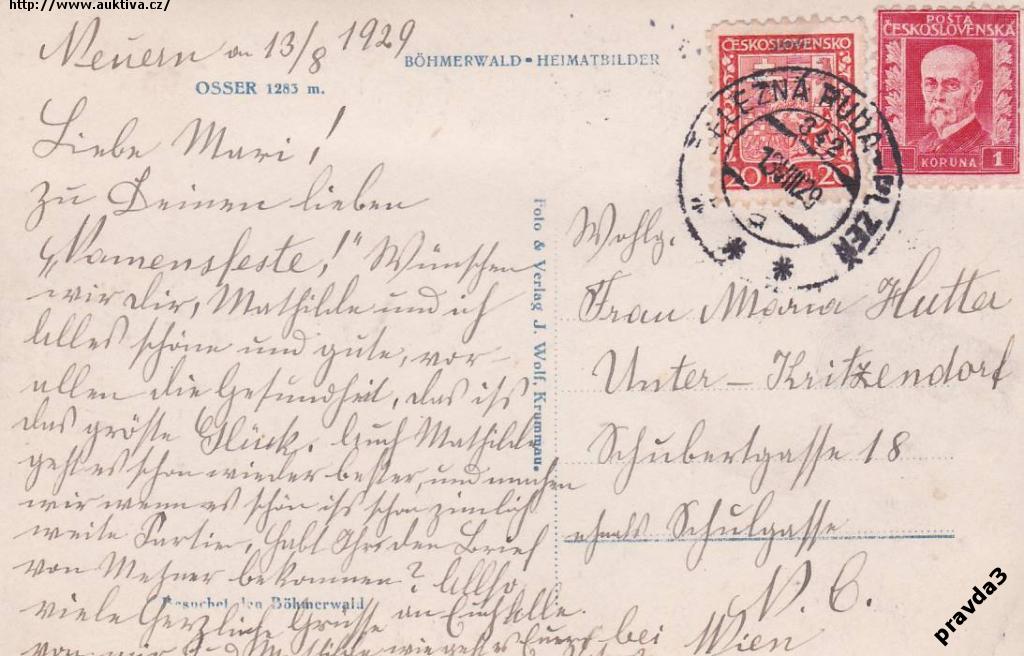 http://www.auktiva.cz/
Neuern am 13/8 1929
BÖHMERWALD-HEIMATBILDER
OSSER 1283 m.
Liebe Mari!
Zu Deinen lieben
„Namensfeste!" Wünschen
wir Dir, Mathilde und ich
Alles schöne und gute, vor-
allen die Gesundheit, das ist
das gröste Glück. Auch Mathilde
geht es schon wieder besser, und machen
wir wenn es schön ist schon zimlich
weite Partien, habt Ihr den Brief
von Messner bekommen? Allso
viele Herzliche Grüsse an Euch Alle.
von mir und Mathilde wie geht es
Besuchet den Böhmerwald
Foto & Verlag J. Wolf, Krummau.
ČESKOSLOVENSKO
20 20
POŠTA
ČESKOSLOVENSKÁ
KORUNA 1
ŽELEZNÁ RUDA-PLZEŇ
342
13.VIII.29
Wohlg.
Frau Maria Hutter
Unter-Kritzendorf
Schubertgasse 18
ehmals Schulgasse
N. Ö.
bei Wien
pravda3